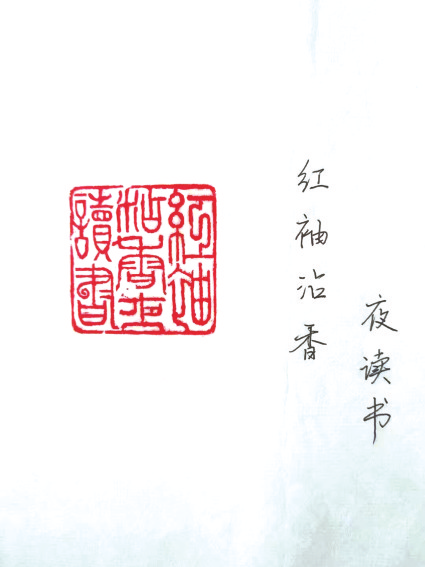 紅袖
沾香夜
讀書
红袖沾香
夜读书